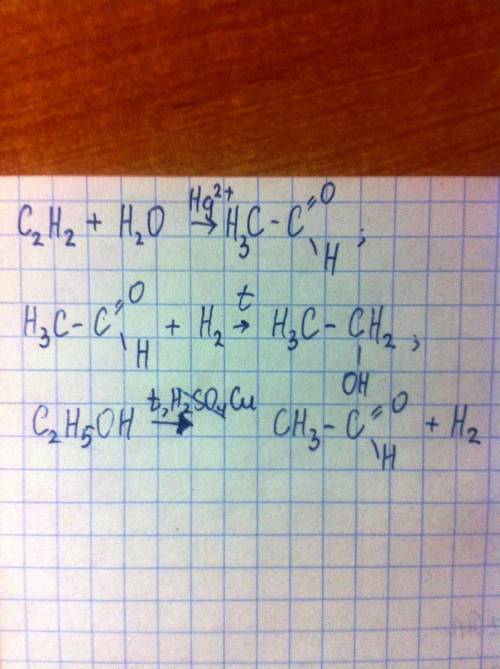 C₂H₂ + H₂O →Hg²⁺ H₃C-C=O-H ;
H₃C-C=O-H + H₂ →t H₃C-CH₂-OH ;
C₂H₅OH →t, Cu CH₃-C=O-H + H₂